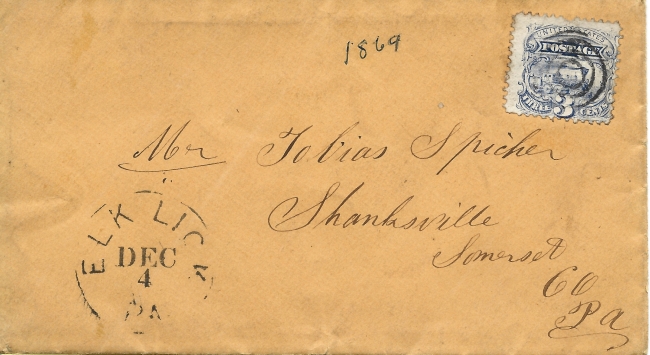 1869
UNITED STATES
POSTAGE
THREE 3 CENTS
Mr Tobias Spicher
Shanksville
Somerset
Co
Pa
ELK LICK
DEC
4
PA